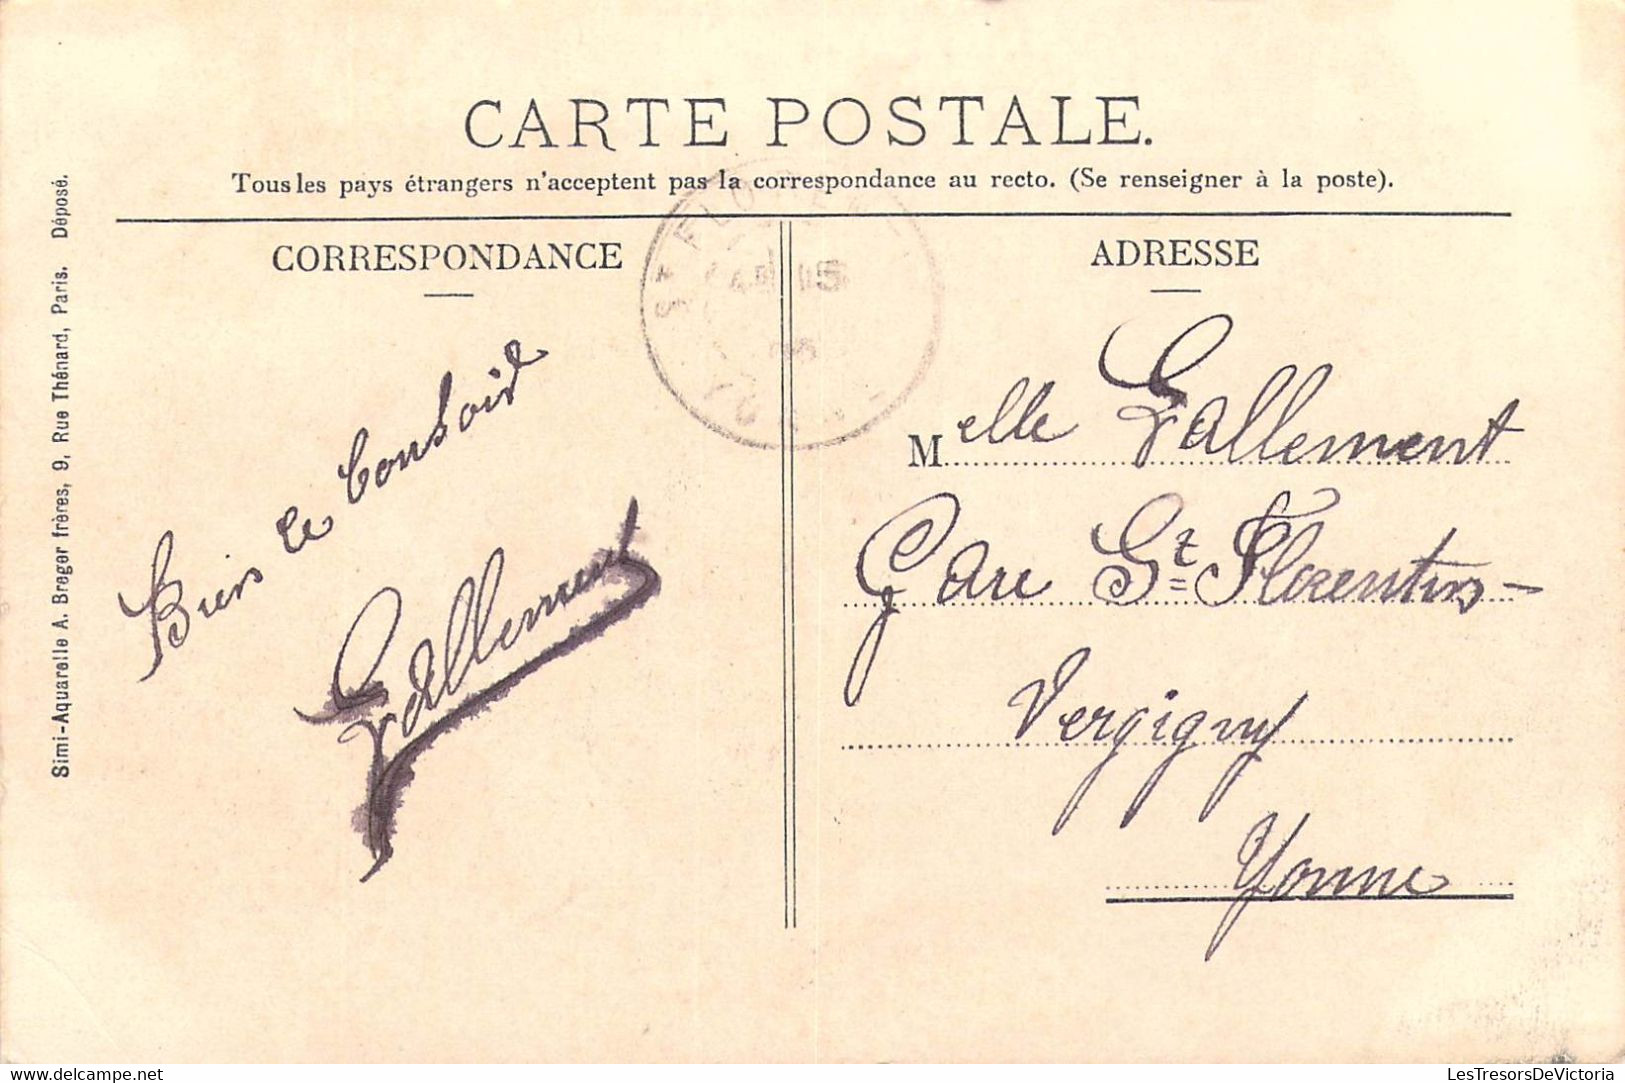 CARTE POSTALE.
Tous les pays étrangers n'acceptent pas la correspondance au recto. (Se renseigner à la poste).
CORRESPONDANCE
Bien le Bonsoir
Lallement
ADRESSE
Melle Lallement
Gare St Florentin-
Vergigny
Yonne
Simi-Aquarelle A. Breger frères, 9, Rue Thénard, Paris. Déposé.
ST FLOREN
www.delcampe.net
LesTresorsDeVictoria